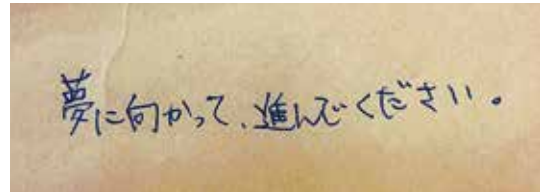 夢に向かって、進んでください。